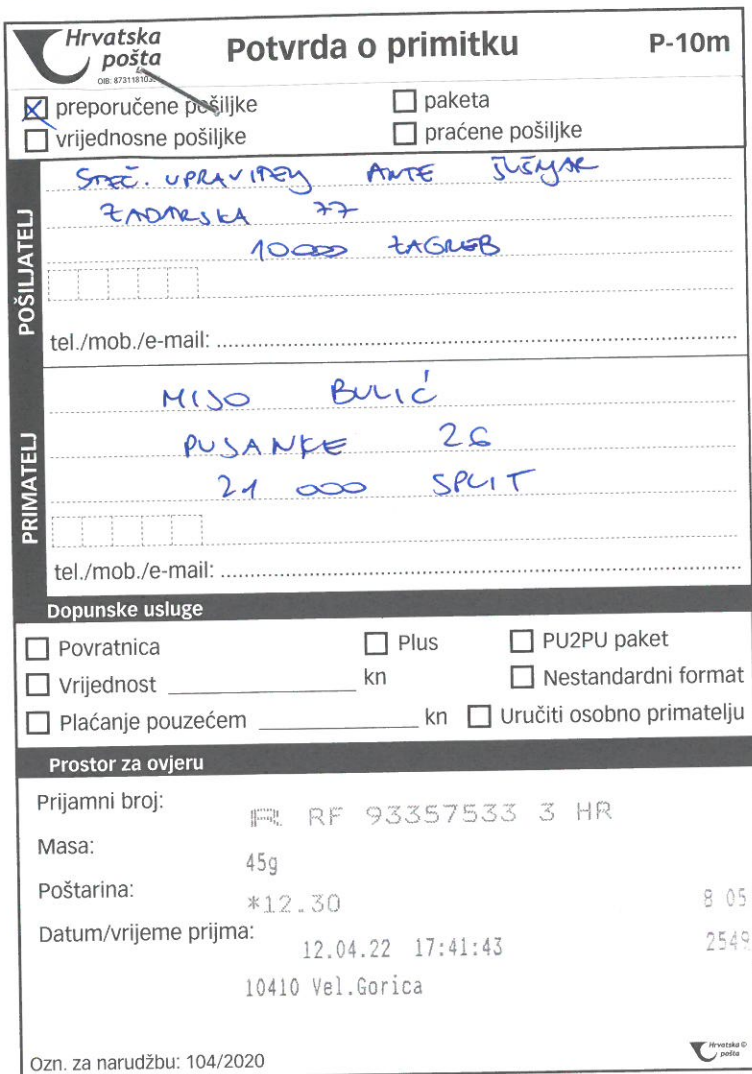 Hrvatska pošta
Potvrda o primitku
P-10m
OIB: 87311810
preporučene pošiljke
paketa
vrijednosne pošiljke
praćene pošiljke
POŠILJATELJ
STEČ. UPRAVITELJ ANTE
ZADARSKA 77
10000 ZAGREB
tel./mob./e-mail:
PRIMATELJ
MIJO BULIĆ
PUJANKE 26
21 000 SPLIT
tel./mob./e-mail:
Dopunske usluge
Povratnica
Plus
PU2PU paket
Vrijednost kn
Nestandardni format
Plaćanje pouzećem kn
Uručiti osobno primatelju
Prostor za ovjeru
Prijamni broj: R RF 93357533 3 HR
Masa: 45g
Poštarina: *12.30 8 05
Datum/vrijeme prijma: 12.04.22 17:41:43 2549
10410 Vel.Gorica
Ozn. za narudžbu: 104/2020
Hrvatska pošta